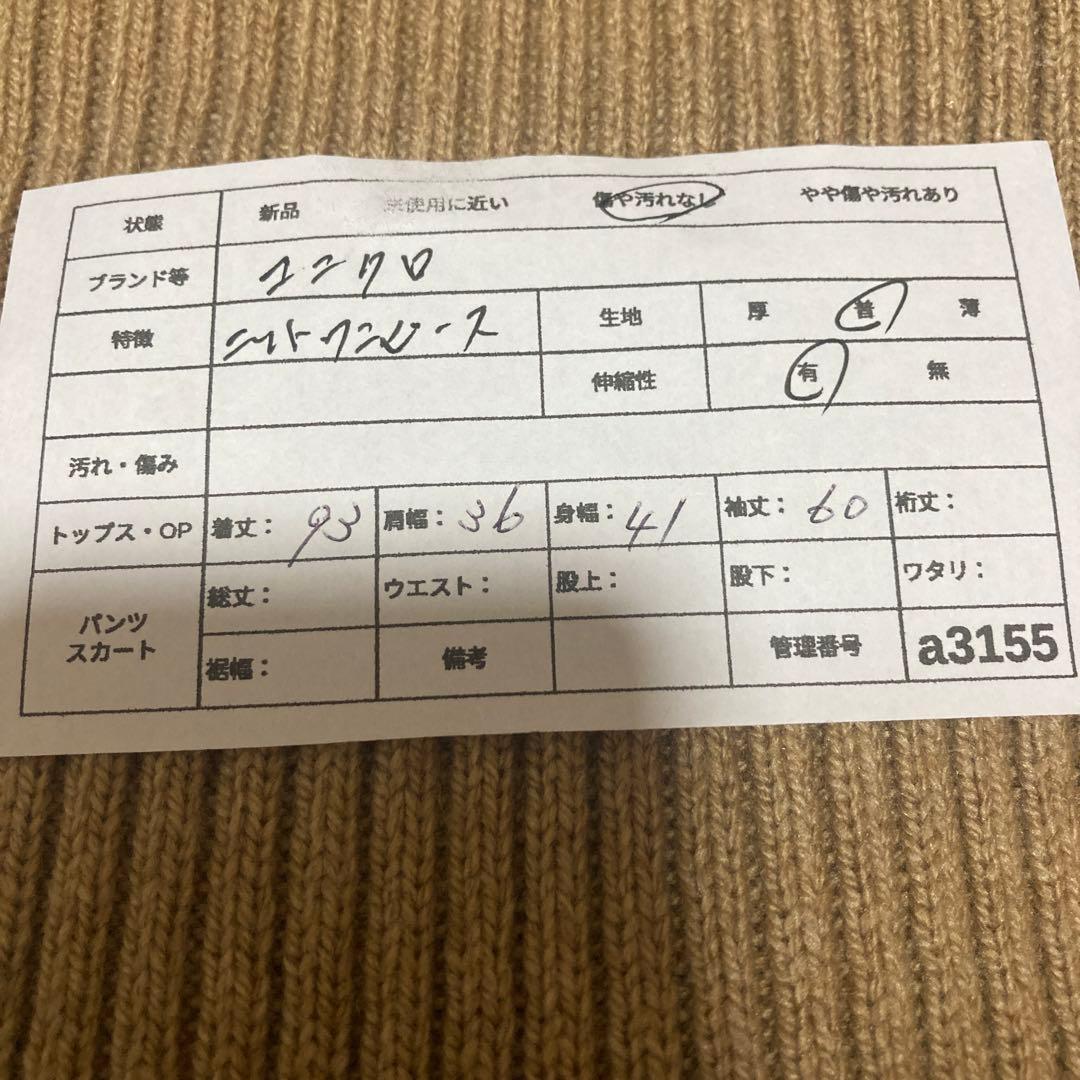 状態 新品 未使用に近い 傷や汚れなし やや傷や汚れあり
ブランド等 ユニクロ
特徴 ニットワンピース 生地 厚 普 薄
伸縮性 有 無
汚れ・傷み
トップス・OP 着丈: 93 肩幅: 36 身幅: 41 袖丈: 60 裄丈:
パンツ スカート 総丈: ウエスト: 股上: 股下: ワタリ:
裾幅: 備考 管理番号 a3155